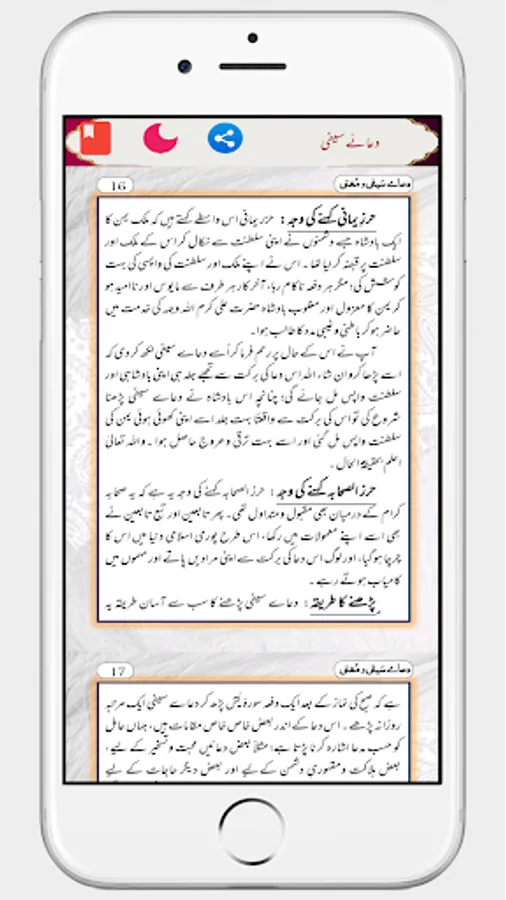 دعائے سیفی
16
دعاے سیفی و مغنی
حرز یمانی کہنے کی وجہ : حرز یمانی اس واسطے کہتے ہیں کہ ملک یمن کا
ایک بادشاہ جسے دشمنوں نے اپنی سلطنت سے نکال کر اس کے ملک اور
سلطنت پر قبضہ کر لیا تھا ۔ اس نے اپنے ملک اور سلطنت کی واپسی کی بہت
کوشش کی؛ مگر ہر دفعہ ناکام رہا، آخر کار ہر طرف سے مایوس اور ناامید ہو
کر یمن کا معزول اور مغلوب بادشاہ حضرت علی کرم اللہ وجہہ کی خدمت میں
حاضر ہو کر باطنی و غیبی مدد کا طالب ہوا۔
آپ نے اس کے حال پر رحم فرما کر اُسے دعاے سیفی لکھ کر دی کہ
اسے پڑھا کرو ان شاء اللہ اس دعا کی برکت سے تجھے جلد ہی اپنی بادشاہی اور
سلطنت واپس مل جائے گی؛ چنانچہ اس بادشاہ نے دعاے سیفی پڑھنا
شروع کی تو اس کی برکت سے واقعتا بہت جلد اسے اپنی کھوئی ہوئی یمن کی
سلطنت واپس مل گئی اور اسے بہت ترقی و عروج حاصل ہوا ۔ واللہ تعالیٰ
اعلم بحقیقۃ الحال ۔
حرز الصحابہ کہنے کی وجہ : حرز الصحابہ کہنے کی وجہ یہ ہے کہ یہ صحابہ
کرام کے درمیان بھی مقبول و متداول تھی۔ پھر تابعین اور تبع تابعین نے
بھی اسے اپنے معمولات میں رکھا، اس طرح پوری اسلامی دنیا میں اس کا
چرچا ہو گیا، اور لوگ اس دعا کی برکت سے اپنی مرادیں پاتے اور مہموں میں
کامیاب ہوتے رہے ۔
پڑھنے کا طریقہ : دعاے سیفی پڑھنے کا سب سے آسان طریقہ یہ
17
دعاے سیفی و مغنی
ہے کہ صبح کی نماز کے بعد ایک دفعہ سورۂ یٰسٓ پڑھ کر دعاے سیفی ایک مرتبہ
روزانہ پڑھے ۔ اس دعا کے اندر بعض خاص خاص مقامات ہیں، جہاں عامل
کو حسب مدعا اشارہ کرنا پڑتا ہے؛ مثلاً بعض دعائیں محبت و تسخیر کے لیے ،
بعض ہلاکت و مقہوری دشمن کے لیے اور بعض دیگر حاجات کے لیے